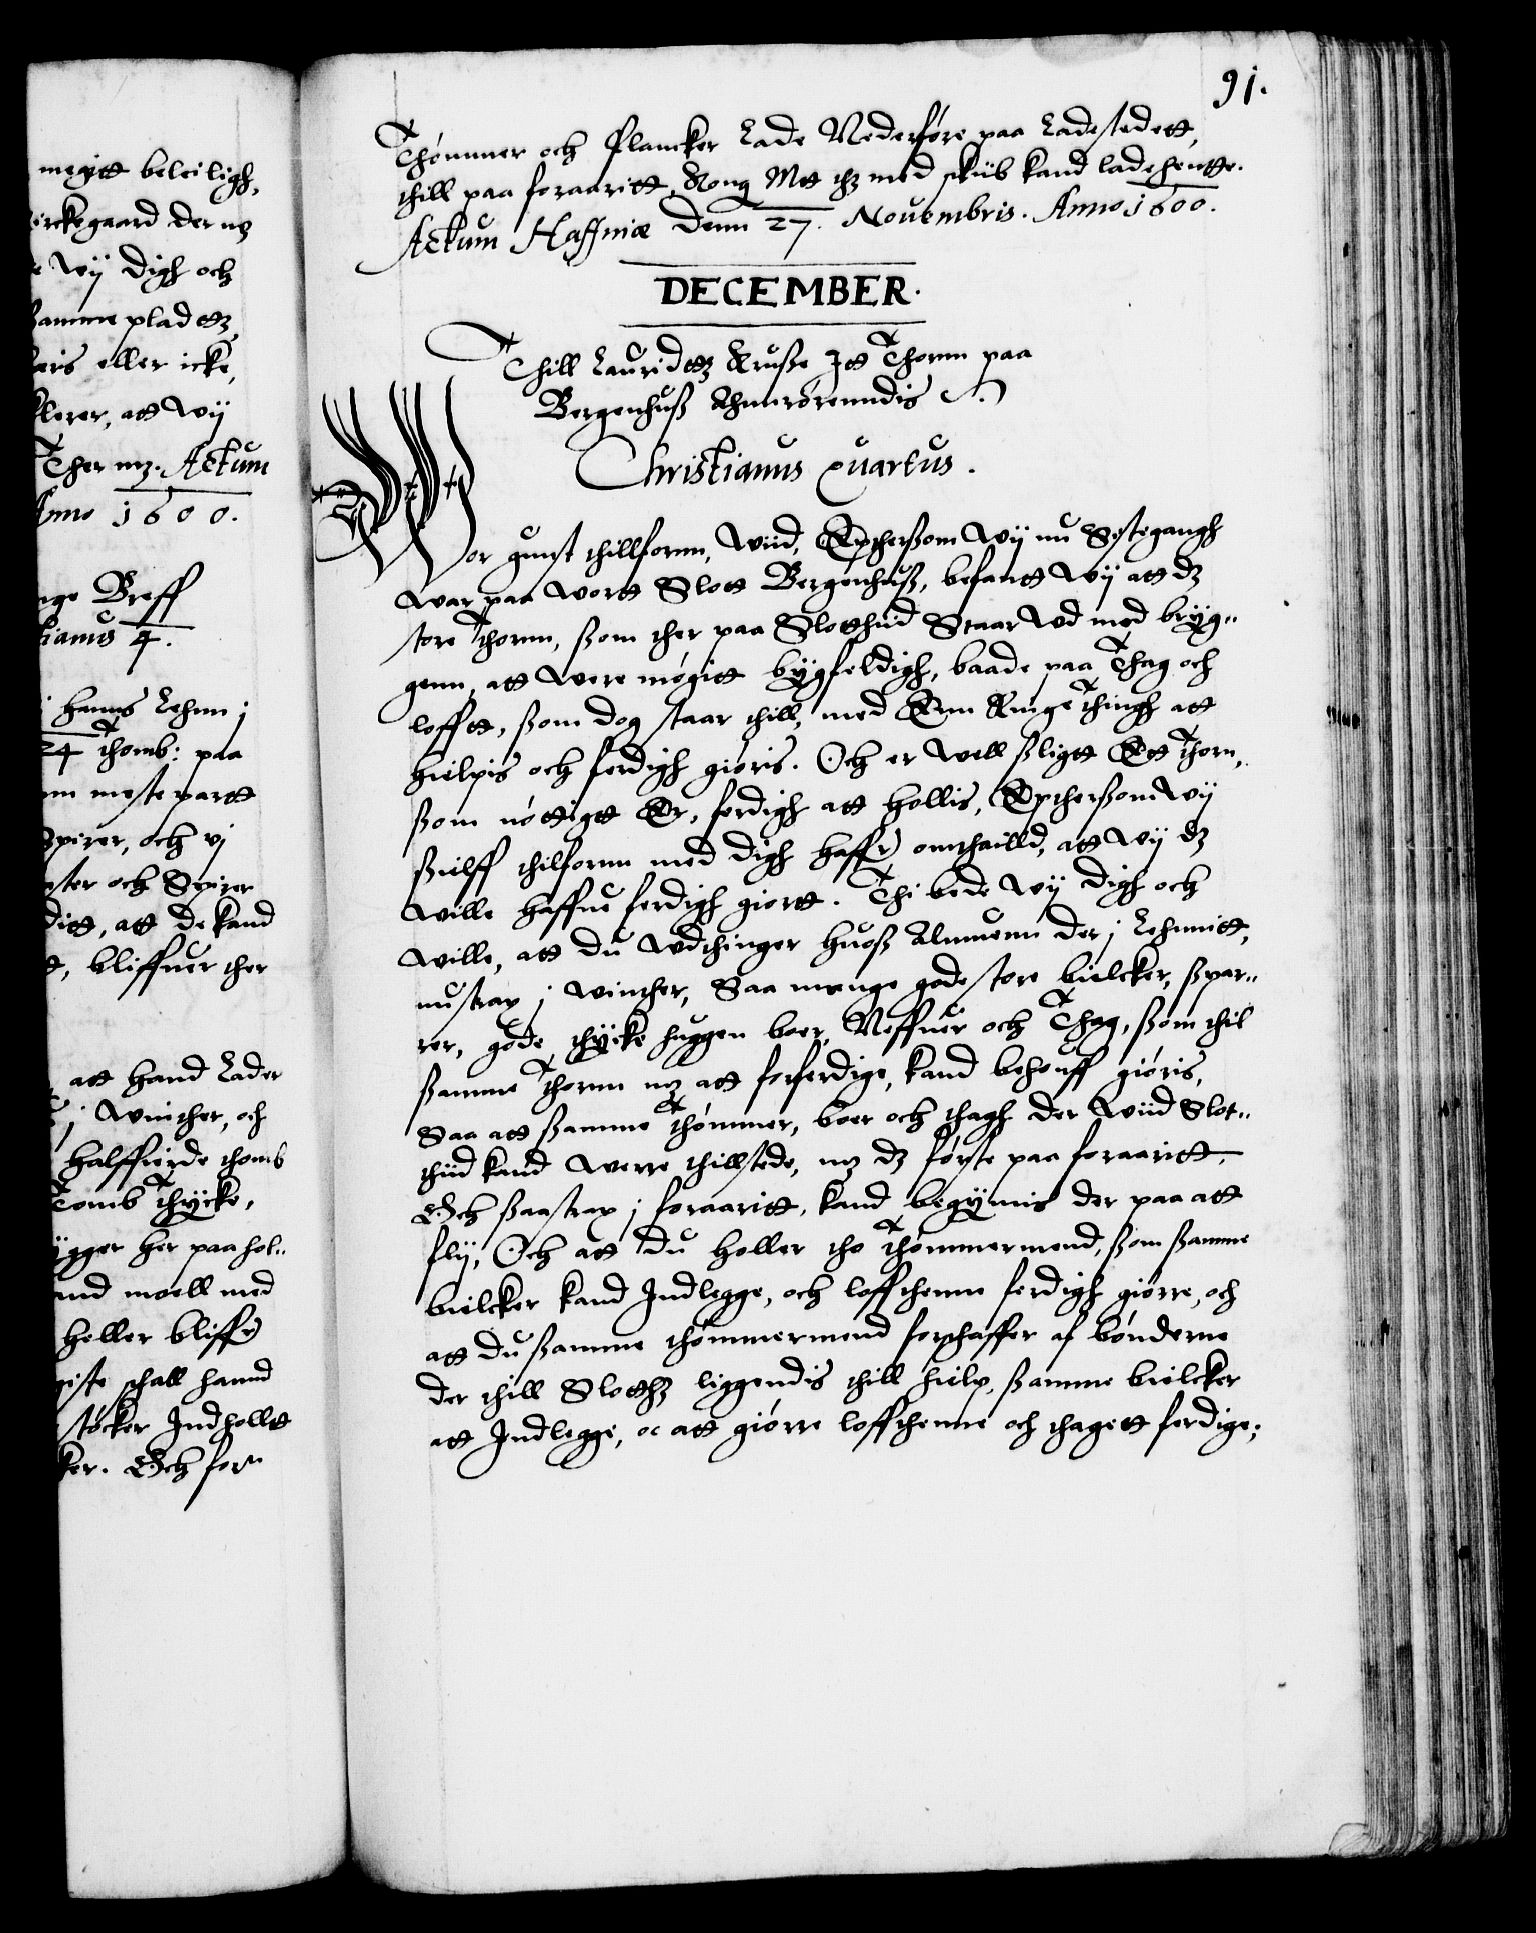 megitt beleiligh,
irckegaard der mz
e Wij digh och
ßamme pladtz,
læris eller icke,
klerer, att wij
Ther mz. Actum
Anno 1600.
nge Breff
tianus 4.
i hanns Lehnn j
24 Thomb: paa
nn meste partt
Spirer, och vj
ster och Spirer
ditt, att de kand
t, bliffuer ther
att hand Lader
j Winther, och
halffierde thomb
Tomb Thycke,
ygger her paa hol¨
und moell med
heller bliffr
geste schall hannd
støcker Indhollt
ker. Och for¨
91.
Thømmer och Plancker Lade Nederføre paa Ladestedett,
thill paa foraaritt, Kong. Mtt thz med skiib kand lade hentte.
Actum Haffniæ Denn 27. Nouembris. Anno 1600.
DECEMBER.
Thill Lauridtz Kruße Itt Thornn paa
Bergenhuß Ahnnrørenndis
Christianus Quartus.
Wor gunst thillfornn, Wiid, Eptherßom Wij nu Sistegangh
war paa wortt Slott Bergenhuß, befantt Wij att dz
store Thornn, ßom ther paa Slotthiid Staar Ud med bryg¨
genn, att Were møgitt bygfeldigh, baade paa Thag och
lofftt, ßom dog staar thill, med Enn Ringe Thingh att
hielpis och ferdigh giøris. Och er well ßligtt Ett Thorn,
ßom nøttigtt Er, ferdigh att hollis, Eptherßom Wij
ßielff thilfornn med digh haffr omthailld, att Wij dz
wille haffue ferdigh giortt. Thi bede Wij digh och
wille, att du Udthinger huoß Almuenn der j Lehnnitt,
nu strax j Winther, Saa mange gode store bielcker, spar¨
rer, gode thycke huggen boer, Neffuer och Thag, ßom thil
ßamme Thornn mz att forferdige, kand behouff giøris,
Saa att ßamme Thømmer, boer och thagh der Wiid Slot¨
thiid kand Werre thillstede, mz dz første paa foraaritt,
Och ßaa strax j foraaritt, kand begynnis der paa att
flij, Och att du holler tho Thømmermend, ßom ßamme
bielcker kand Indlegge, och loffthenn ferdigh giørre, och
att du ßamme thømmermend forschaffer af bønderne
der thill Slotthz liggendis thill hielp, ßamme bielcker
att Indlegge, oc att giørre loffthenne och thagett ferdige;